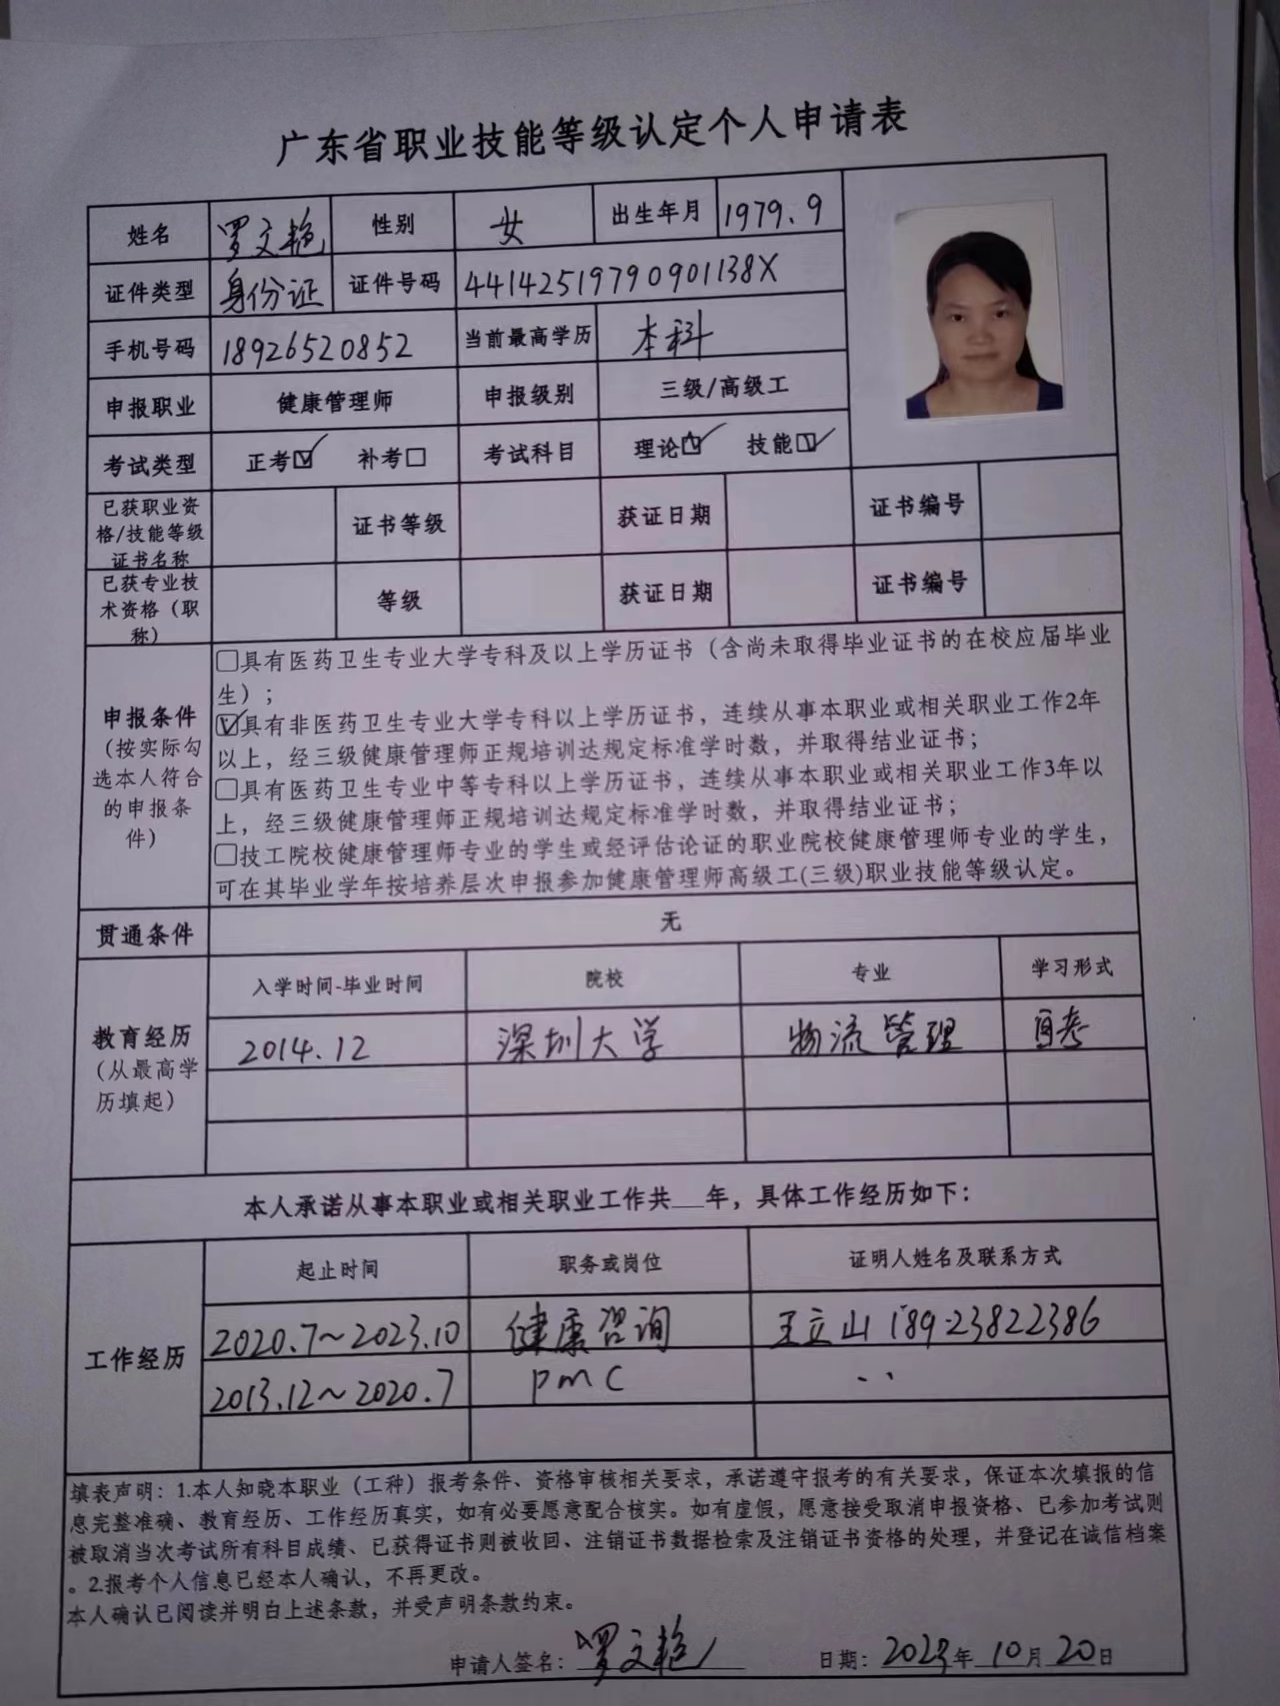 广东省职业技能等级认定个人申请表
姓名 罗文艳 性别 女 出生年月 1979.9
证件类型 身份证 证件号码 44142519790901138X
手机号码 18926520852 当前最高学历 本科
申报职业 健康管理师 申报级别 三级/高级工
考试类型 正考☑ 补考□ 考试科目 理论☑ 技能☑
已获职业资格/技能等级证书名称 证书等级 获证日期 证书编号
已获专业技术资格（职称） 等级 获证日期 证书编号
申报条件
（按实际勾选本人符合的申报条件）
□具有医药卫生专业大学专科及以上学历证书（含尚未取得毕业证书的在校应届毕业
生）；
☑具有非医药卫生专业大学专科以上学历证书，连续从事本职业或相关职业工作2年
以上，经三级健康管理师正规培训达规定标准学时数，并取得结业证书；
□具有医药卫生专业中等专科以上学历证书，连续从事本职业或相关职业工作3年以
上，经三级健康管理师正规培训达规定标准学时数，并取得结业证书；
□技工院校健康管理师专业的学生或经评估论证的职业院校健康管理师专业的学生，
可在其毕业学年按培养层次申报参加健康管理师高级工(三级)职业技能等级认定。
贯通条件 无
教育经历
（从最高学历填起）
入学时间-毕业时间 院校 专业 学习形式
2014.12 深圳大学 物流管理 自考
本人承诺从事本职业或相关职业工作共__年，具体工作经历如下：
工作经历
起止时间 职务或岗位 证明人姓名及联系方式
2020.7~2023.10 健康咨询 王立山 18923822386
2013.12~2020.7 PMC ..
填表声明：1.本人知晓本职业（工种）报考条件、资格审核相关要求，承诺遵守报考的有关要求，保证本次填报的信
息完整准确、教育经历、工作经历真实，如有必要愿意配合核实。如有虚假，愿意接受取消申报资格、已参加考试则
被取消当次考试所有科目成绩、已获得证书则被收回、注销证书数据检索及注销证书资格的处理，并登记在诚信档案
。2.报考个人信息已经本人确认，不再更改。
本人确认已阅读并明白上述条款，并受声明条款约束。
申请人签名：罗文艳 日期：2023年10月20日